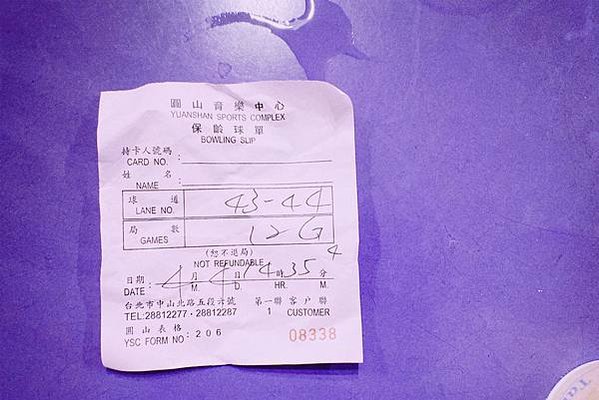 圓山育樂中心
YUANSHAN SPORTS COMPLEX
保齡球單
BOWLING SLIP
持卡人號碼
CARD NO. :
姓名
NAME :
球道 43-44
LANE NO.
局數 12G
GAMES
(恕不退局)
NOT REFUNDABLE 4
日期: 4月 4日 14時 35分
DATE: M. D. HR. M.
台北市中山北路五段六號 第一聯 客戶聯
TEL:28812277·28812287 1 CUSTOMER
圓山表格
YSC FORM NO: 206 08338